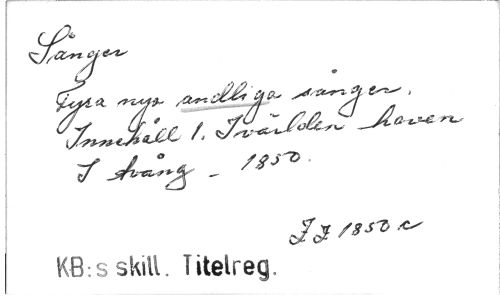 Sånger
Fyra nya andliga sånger.
Innehåll 1. I världen haven
I tvång - 1850.
1850 c
KB:s skill. Titelreg.